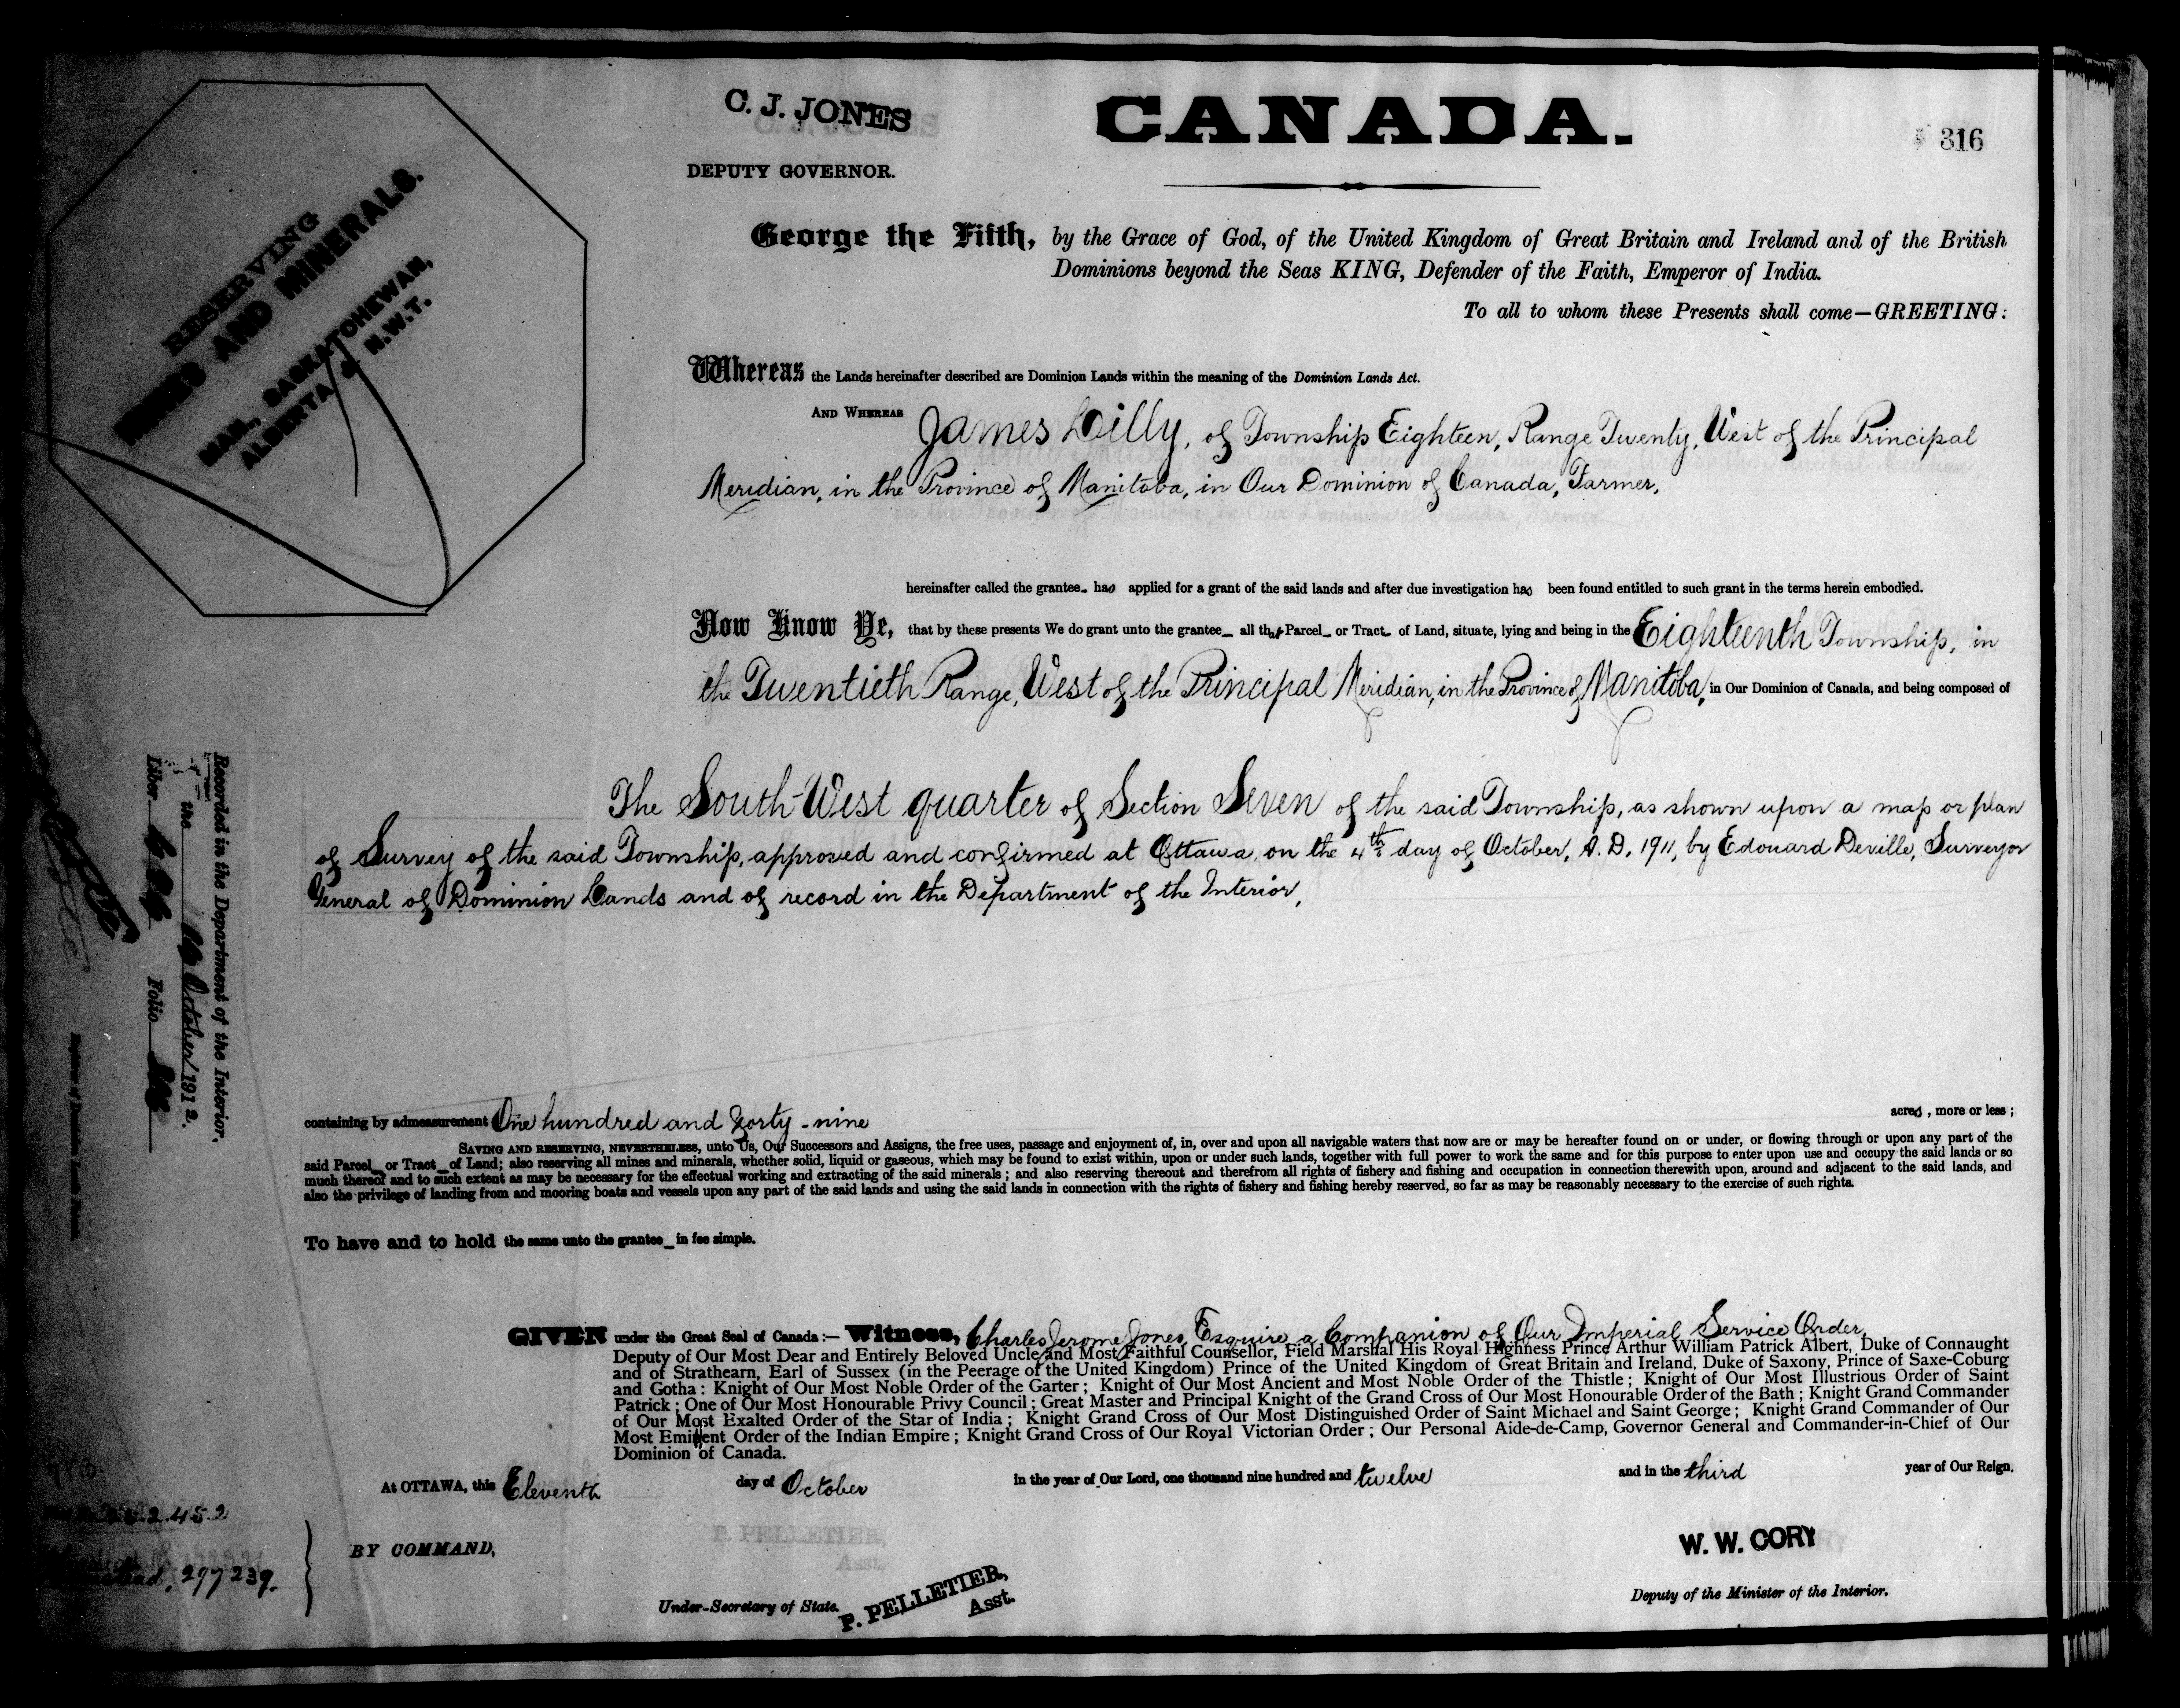 C. J. JONES
DEPUTY GOVERNOR.
CANADA.
316
RESERVING
MINES AND MINERALS.
MAN., SASKATCHEWAN,
ALBERTA & N.W.T.
George the Fifth, by the Grace of God, of the United Kingdom of Great Britain and Ireland and of the British
Dominions beyond the Seas KING, Defender of the Faith, Emperor of India.
To all to whom these Presents shall come—GREETING:
Whereas the Lands hereinafter described are Dominion Lands within the meaning of the Dominion Lands Act.
AND WHEREAS James Lilly, of Township Eighteen, Range Twenty, West of the Principal
Meridian, in the Province of Manitoba, in Our Dominion of Canada, Farmer,
hereinafter called the grantee_ has applied for a grant of the said lands and after due investigation has been found entitled to such grant in the terms herein embodied.
Now Know Ye, that by these presents We do grant unto the grantee_ all that Parcel_ or Tract_ of Land, situate, lying and being in the Eighteenth Township, in
the Twentieth Range, West of the Principal Meridian, in the Province of Manitoba, in Our Dominion of Canada, and being composed of
The South-West quarter of Section Seven of the said Township, as shown upon a map or plan
of Survey of the said Township, approved and confirmed at Ottawa, on the 4th day of October, A.D. 1911, by Edouard Deville, Surveyor
General of Dominion Lands and of record in the Department of the Interior,
Recorded in the Department of the Interior,
the October 1912.
Liber Folio
containing by admeasurement One hundred and forty-nine acres, more or less;
SAVING AND RESERVING, NEVERTHELESS, unto Us, Our Successors and Assigns, the free uses, passage and enjoyment of, in, over and upon all navigable waters that now are or may be hereafter found on or under, or flowing through or upon any part of the
said Parcel_ or Tract_ of Land; also reserving all mines and minerals, whether solid, liquid or gaseous, which may be found to exist within, upon or under such lands, together with full power to work the same and for this purpose to enter upon use and occupy the said lands or so
much thereof and to such extent as may be necessary for the effectual working and extracting of the said minerals; and also reserving thereout and therefrom all rights of fishery and fishing and occupation in connection therewith upon, around and adjacent to the said lands, and
also the privilege of landing from and mooring boats and vessels upon any part of the said lands and using the said lands in connection with the rights of fishery and fishing hereby reserved, so far as may be reasonably necessary to the exercise of such rights.
To have and to hold the same unto the grantee_ in fee simple.
GIVEN under the Great Seal of Canada:— Witness, Charles Jerome Jones, Esquire, a Companion of Our Imperial Service Order,
Deputy of Our Most Dear and Entirely Beloved Uncle and Most Faithful Counsellor, Field Marshal His Royal Highness Prince Arthur William Patrick Albert, Duke of Connaught
and of Strathearn, Earl of Sussex (in the Peerage of the United Kingdom) Prince of the United Kingdom of Great Britain and Ireland, Duke of Saxony, Prince of Saxe-Coburg
and Gotha: Knight of Our Most Noble Order of the Garter; Knight of Our Most Ancient and Most Noble Order of the Thistle; Knight of Our Most Illustrious Order of Saint
Patrick; One of Our Most Honourable Privy Council; Great Master and Principal Knight of the Grand Cross of Our Most Honourable Order of the Bath; Knight Grand Commander
of Our Most Exalted Order of the Star of India; Knight Grand Cross of Our Most Distinguished Order of Saint Michael and Saint George; Knight Grand Commander of Our
Most Eminent Order of the Indian Empire; Knight Grand Cross of Our Royal Victorian Order; Our Personal Aide-de-Camp, Governor General and Commander-in-Chief of Our
Dominion of Canada.
At OTTAWA, this Eleventh day of October in the year of Our Lord, one thousand nine hundred and twelve and in the third year of Our Reign.
297239.
BY COMMAND,
Under-Secretary of State.
P. PELLETIER,
Asst.
W. W. CORY
Deputy of the Minister of the Interior.